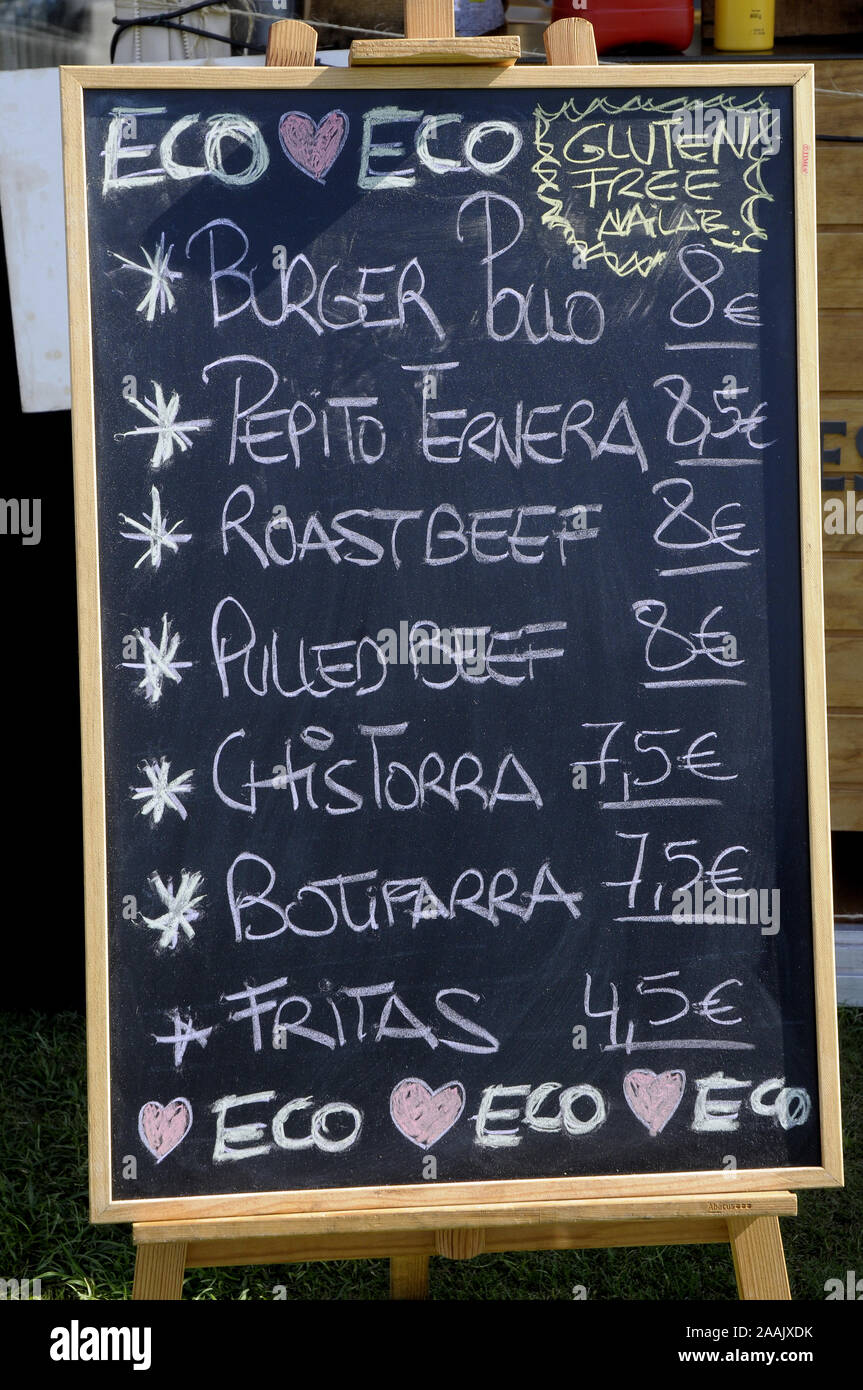 ECO ECO
GLUTEN
FREE
AVAILAB.
BURGER POLLO 8€
PEPITO TERNERA 8,5€
ROASTBEEF 8€
PULLED BEEF 8€
CHISTORRA 7,5€
BOTIFARRA 7,5€
FRITAS 4,5€
ECO ECO ECO
Abacus
alamy
Image ID: 2AAJXDK
www.alamy.com